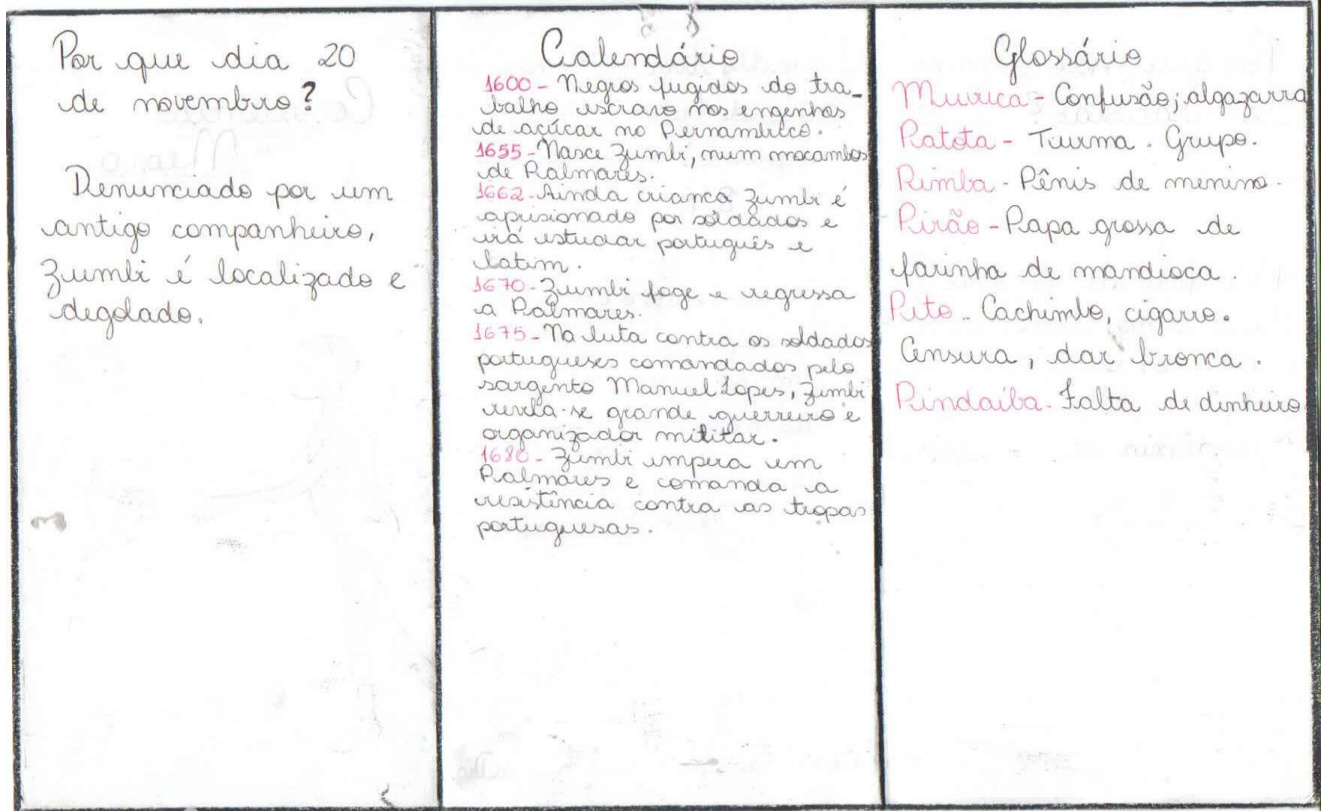 Por que dia 20
de novembro?
Denunciado por um
antigo companheiro,
Zumbi é localizado e
degolado.
Calendário
1600 - Negros fugidos do tra-
balho escravo nos engenhos
de açúcar no Pernambuco.
1655 - Nasce Zumbi, num mocambos
de Palmares.
1662 - Ainda criança Zumbi é
aprisionado por soldados e
irá estudar português e
latim.
1670 - Zumbi foge e regressa
a Palmares.
1675 - Na luta contra os soldados
portugueses comandados pelo
sargento Manuel Lopes, Zumbi
revela-se grande guerreiro e
organizador militar.
1680 - Zumbi impera em
Palmares e comanda a
resistência contra as tropas
portuguesas.
Glossário
Muvuca - Confusão; algazarra
Patota - Turma. Grupo.
Pimba - Pênis de menino.
Pirão - Papa grossa de
farinha de mandioca
Pito - Cachimbo, cigarro.
Censura, dar bronca.
Pindaíba - Falta de dinheiro